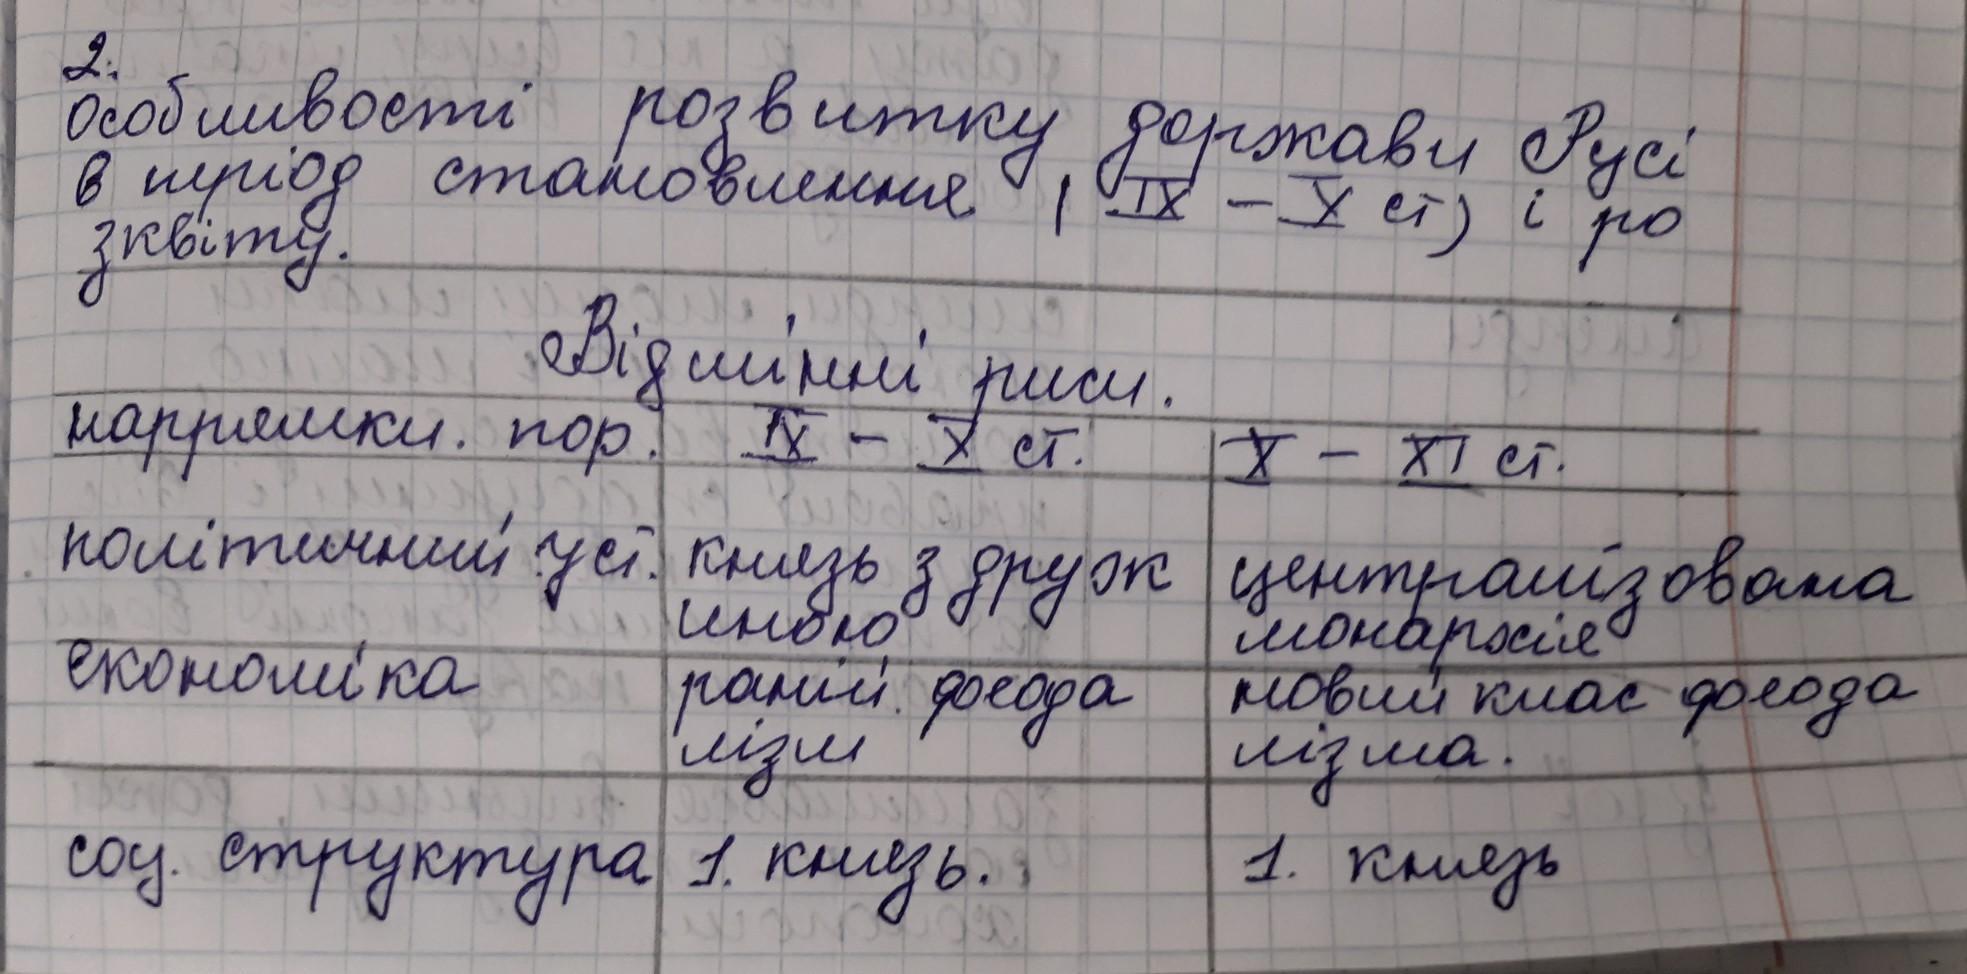 2.
особливості розвитку держави Русі
в період становлення (ІХ – Х ст) і ро
зквіту.
Відмінні риси.
напрямки. пор. ІХ – Х ст. Х – ХІ ст.
політичний уст. князь з друж централізована
иною монархія
економіка раній. феода новий клас феода
лізм лізма.
соц. структура 1. князь. 1. князь